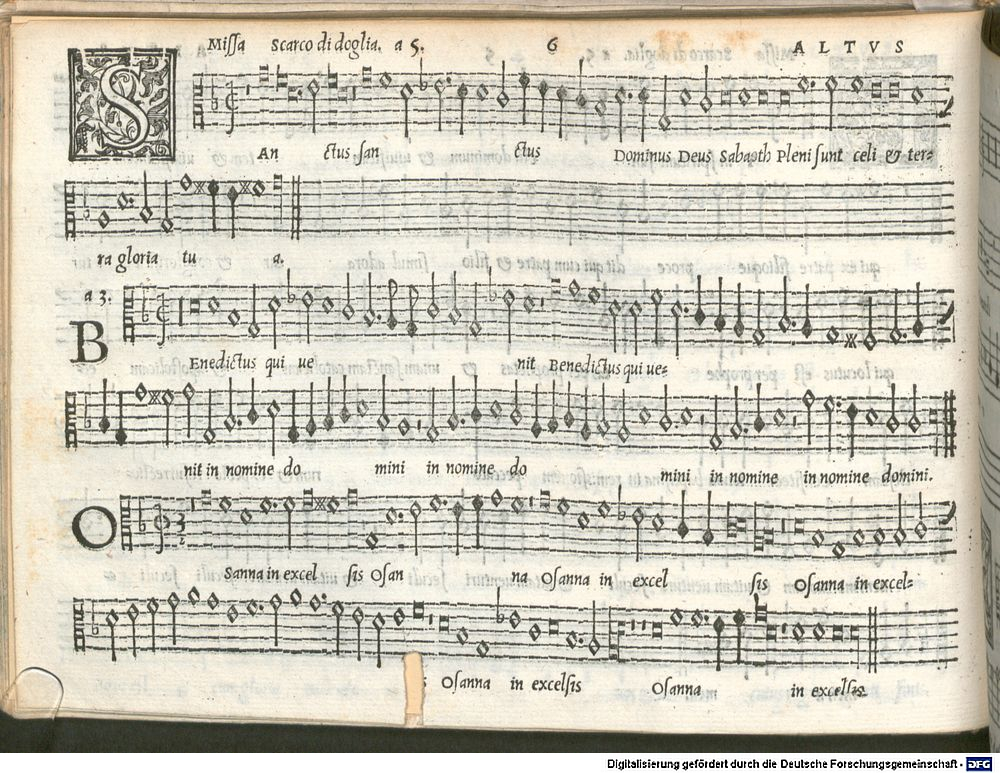 Missa Scarco di doglia. a 5. 6 ALTVS
SAN ctus san ctus Dominus Deus Sabaoth Pleni sunt celi & ter=
ra gloria tu a.
a 3.
BEnedictus qui ue nit Benedictus qui ue=
nit in nomine do mini in nomine do mini in nomine in nomine domini.
OSanna in excel sis Osan na Osanna in excel sis Osanna in excel=
s Osanna in excelsis Osanna in excelsis.
Digitalisierung gefördert durch die Deutsche Forschungsgemeinschaft - DFG